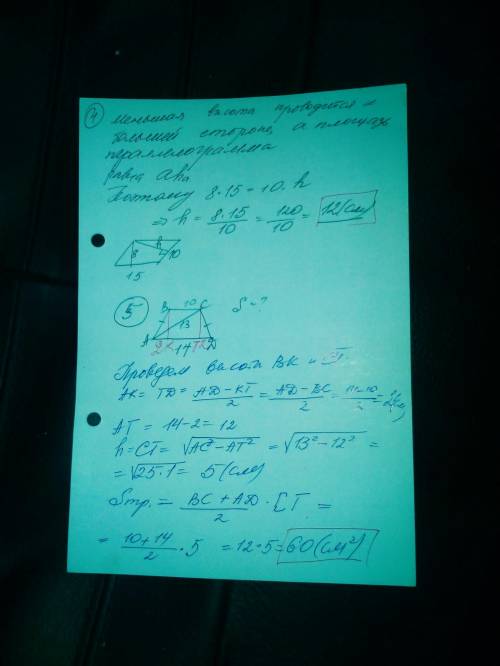 4
меньшая высота проводится к
большей стороне, а площадь
параллелограмма
равна aha
Поэтому 8·15=10·h
⇒ h = 8·15/10 = 120/10 = 12(см)
8 h 10
15
5
B 10 C S=?
13
A 2 K 14 T 2 D
Проведем высоты BK и CT
AK = TD = AD-KT/2 = AD-BC/2 = 14-10/2 = 2(см)
AT = 14-2 = 12
h=CT = √AC²-AT² = √13²-12² =
= √25·1 = 5(см)
Sтр. = BC+AD/2 · CT =
= 10+14/2 · 5 = 12·5 = 60(см²)